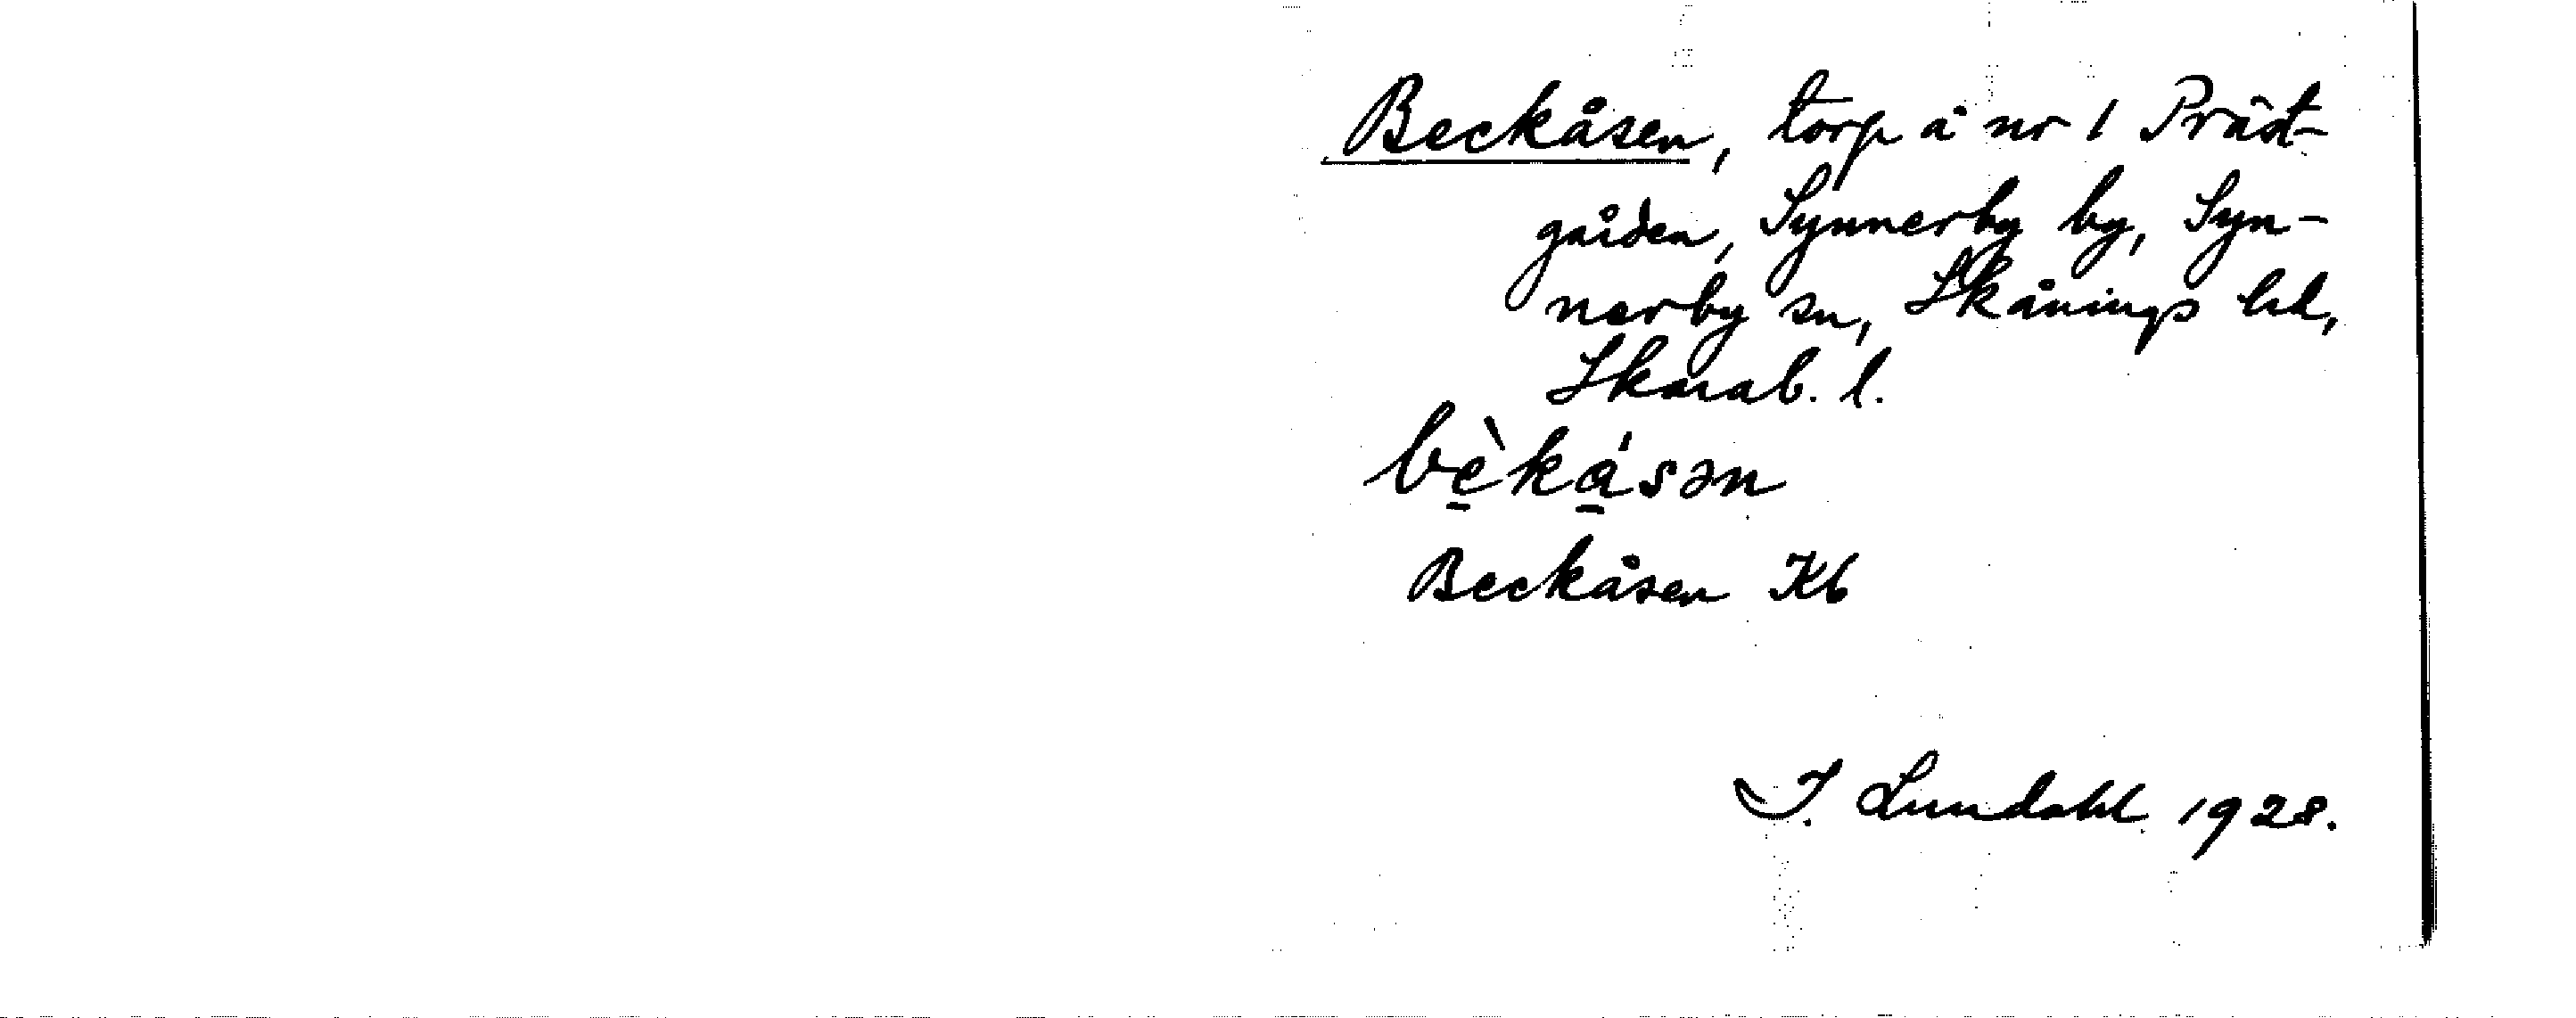 Beckåsen, torp å nr 1 Präst-
gården, Synnerby by, Syn-
nerby sn, Skånings hd,
Skarab. l.
bè̠ká̠sən
Beckåsen Kb
I. Lundahl 1928.